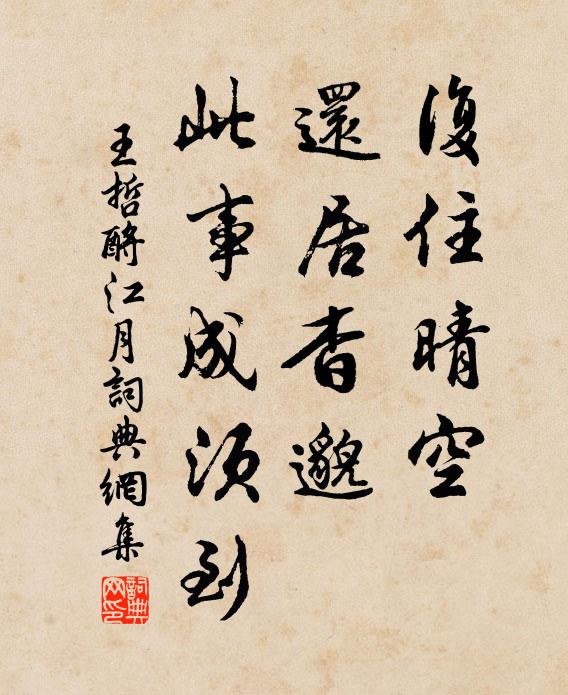 復住晴空
還居杳邈
此事成須到
王哲酹江月詞典網集
詞典網印